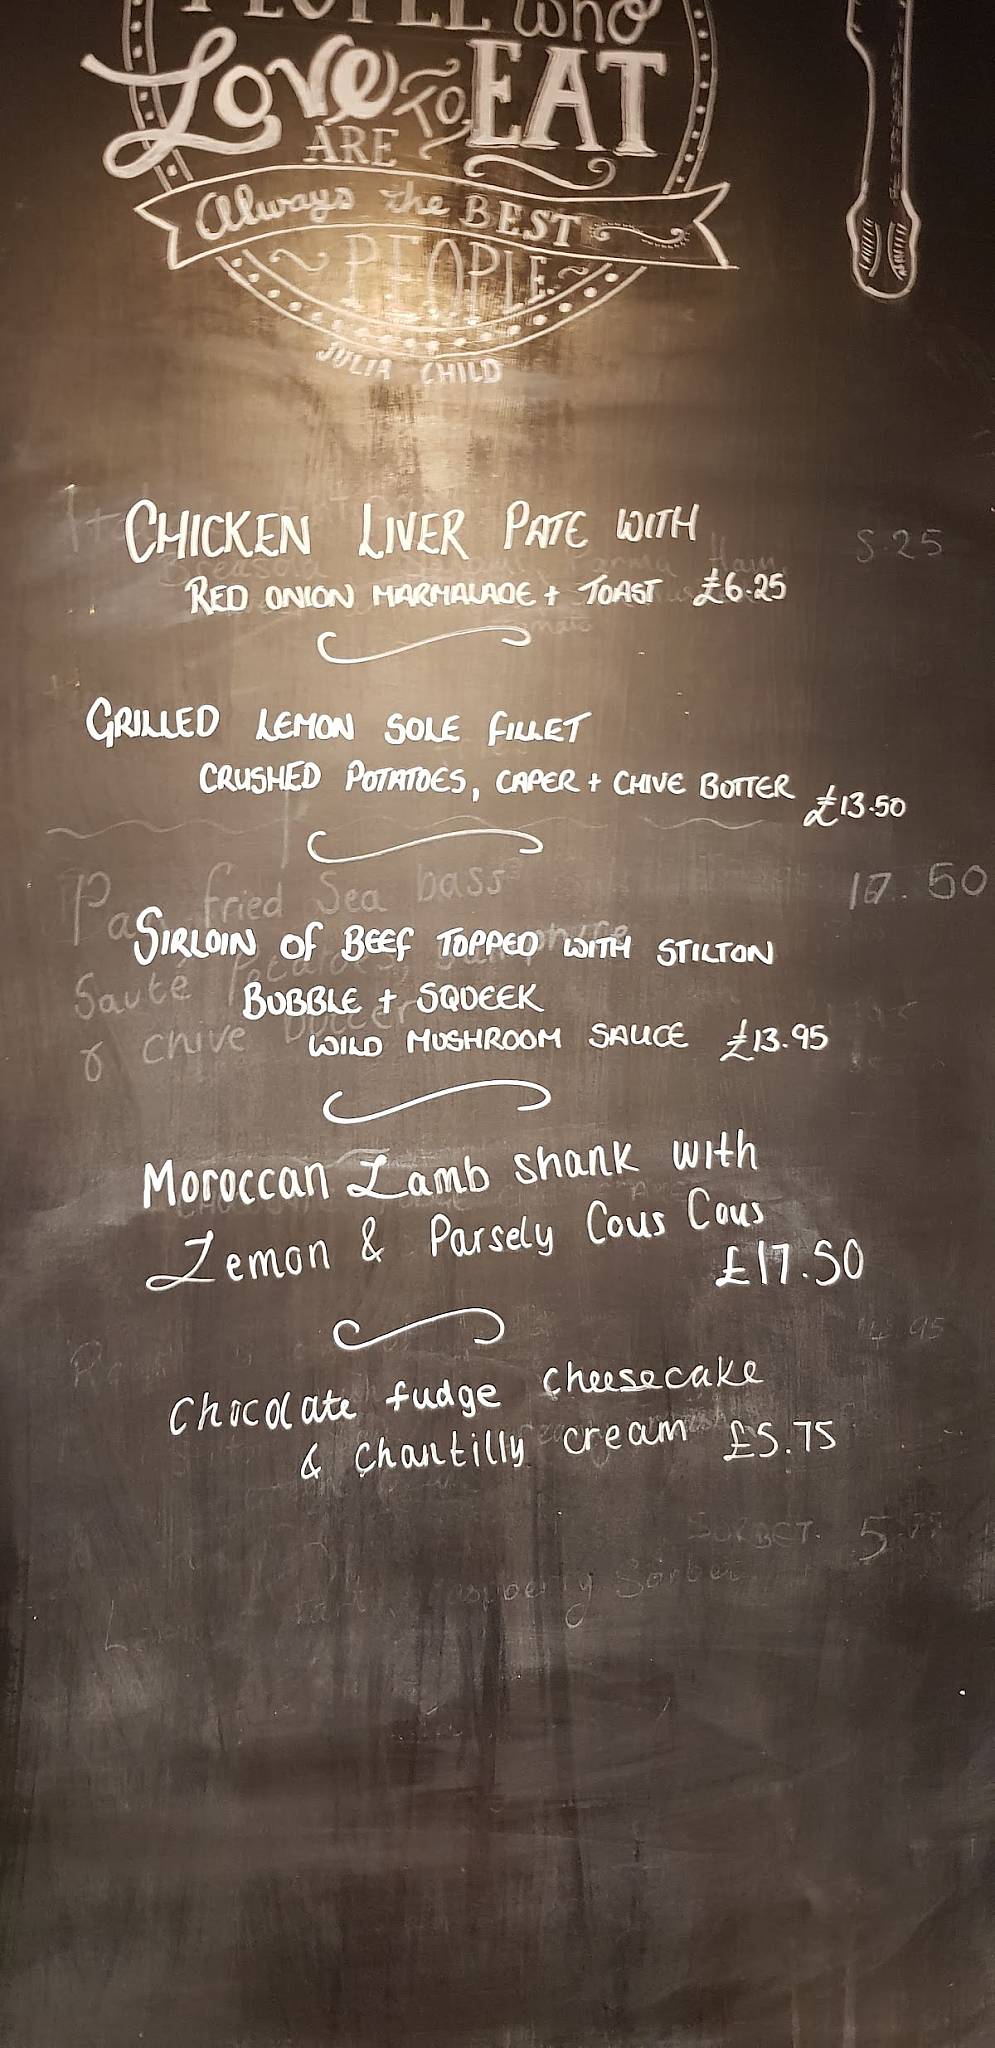 PEOPLE who
Love TO EAT
ARE
Always the BEST
PEOPLE
JULIA CHILD
CHICKEN LIVER PATE WITH
RED ONION MARMALADE + TOAST £6.25
GRILLED LEMON SOLE FILLET
CRUSHED POTATOES, CAPER + CHIVE BUTTER £13.50
Pan fried Sea bass
SIRLOIN OF BEEF TOPPED WITH STILTON
Sauté
BUBBLE + SQUEEK
& chive butter
WILD MUSHROOM SAUCE £13.95
Moroccan Lamb shank with
Lemon & Parsely Cous Cous
£17.50
Chocolate fudge cheesecake
& Chantilly cream £5.75